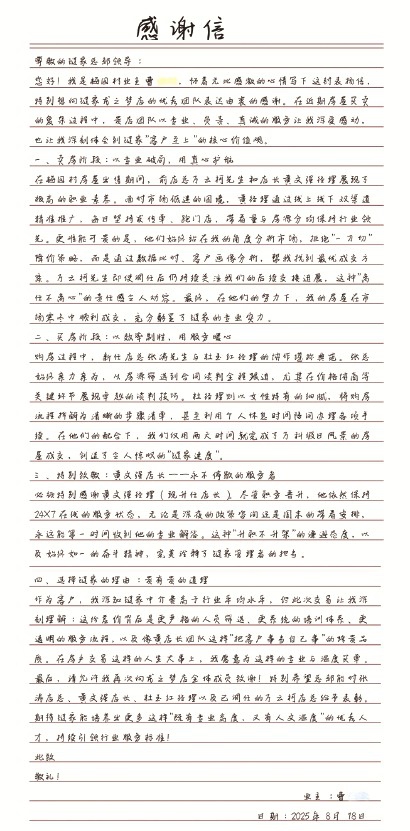 感谢信
尊敬的链家总部领导：
您好！我是梅园村业主曹　　，怀着无比感激的心情写下这封表扬信，
特别想向链家龙之梦店的优秀团队表达由衷的感谢。在近期房屋买卖
的复杂过程中，贵店团队以专业、负责、真诚的服务让我深受感动，
也让我深刻体会到链家"客户至上"的核心价值观。
一、卖房阶段：以专业破局，用真心护航
在梅园村房屋出售期间，前店总万三柯先生和店长黄文得经理展现了
极高的职业素养。面对市场低迷的困境，黄经理通过线上线下双渠道
精准推广，每日坚持发传单、跑门店，带看量与房源分均保持行业领
先。更难能可贵的是，他们始终站在我的角度分析市场，拒绝"一刀切"
降价策略，而是通过数据比对、客户画像分析，帮我找到最优成交方
案。万三柯先生即使调任后仍持续关注我们的后续交接进展，这种"离
任不离心"的责任感令人动容。最终，在他们的努力下，我的房屋在市
场寒冬中顺利成交，充分彰显了链家的专业实力。
二、买房阶段：以效率制胜，用服务暖心
购房过程中，新任店总张涛先生与杜玉红经理的协作堪称典范。张总
始终亲力亲为，从房源筛选到合同谈判全程跟进，尤其在价格博弈等
关键环节展现卓越的谈判技巧。杜经理则以女性特有的细腻，将购房
流程拆解为清晰的步骤清单，甚至利用个人休息时间陪同办理各项手
续。在他们的配合下，我们仅用两天时间就完成了万科假日风景的房
屋成交，创造了令人惊叹的"链家速度"。
三、特别致敬：黄文得店长——永不停歇的服务者
必须特别感谢黄文得经理（现升任店长）。尽管职务晋升，他依然保持
24X7在线的服务状态，无论是深夜的政策咨询还是周末的带看安排，
永远能第一时间收到他的专业解答。这种"升职不升架"的谦逊态度，以
及始终如一的奋斗精神，完美诠释了链家管理者的担当。
四、选择链家的理由：贵有贵的道理
作为客户，我深知链家中介费高于行业平均水平，但此次交易让我深
刻理解：这份名价背后是更严格的人员筛选、更系统的培训体系、更
透明的服务流程，以及像黄店长团队这样"把客户事当自己事"的珍贵品
质。在房产交易这样的人生大事上，我愿意为这样的专业与温度买单。
最后，请允许我再次向龙之梦店全体成员致谢！特别希望总部能对张
涛店总、黄文得店长、杜玉红经理以及已调任的万三柯店总给予表彰。
期待链家能培养出更多这样"既有专业高度，又有人文温度"的优秀人
才，持续引领行业服务标准！
此致
敬礼！
业主：曹
日期：2025年8月18日